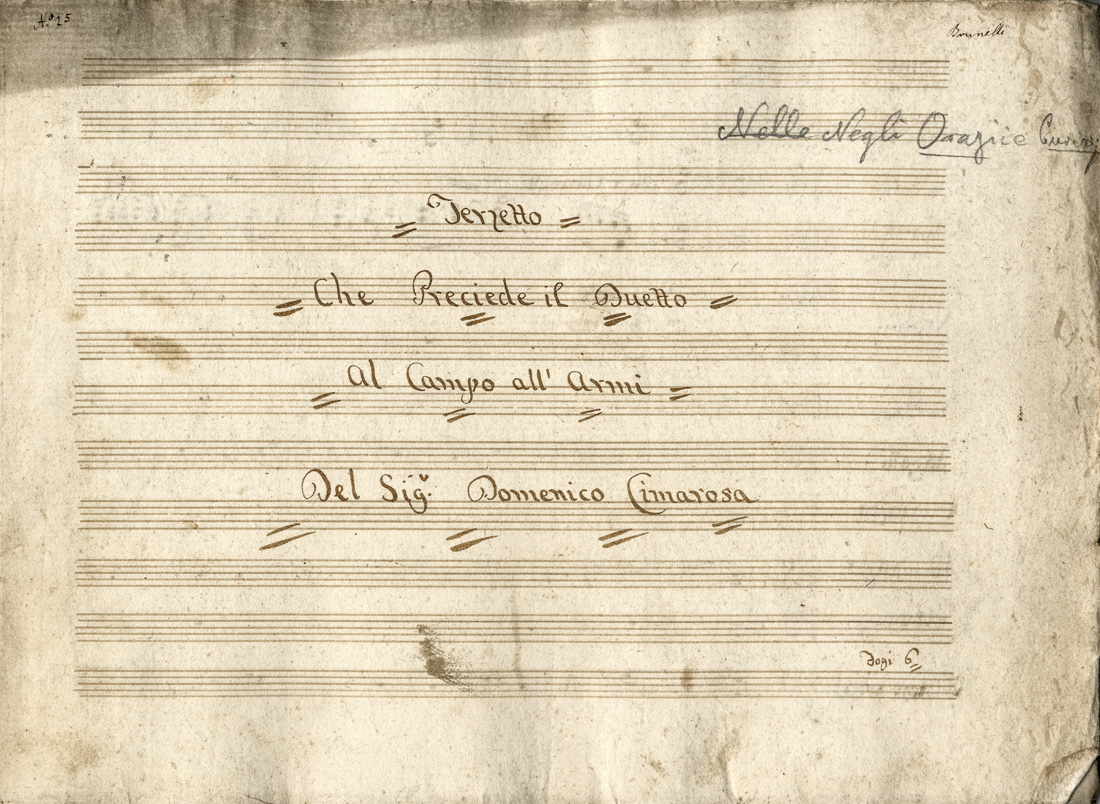 N.º 25
Brunelli
Nelle Negli Orazi e Curiazi
Terzetto
Che Preciede il Duetto
Al Campo all' Armi
Del Sig.r Domenico Cimarosa
6